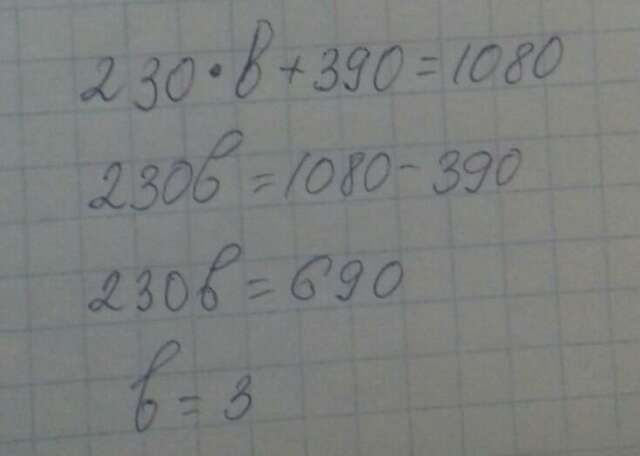 230·b+390=1080
230b=1080-390
230b=690
b=3